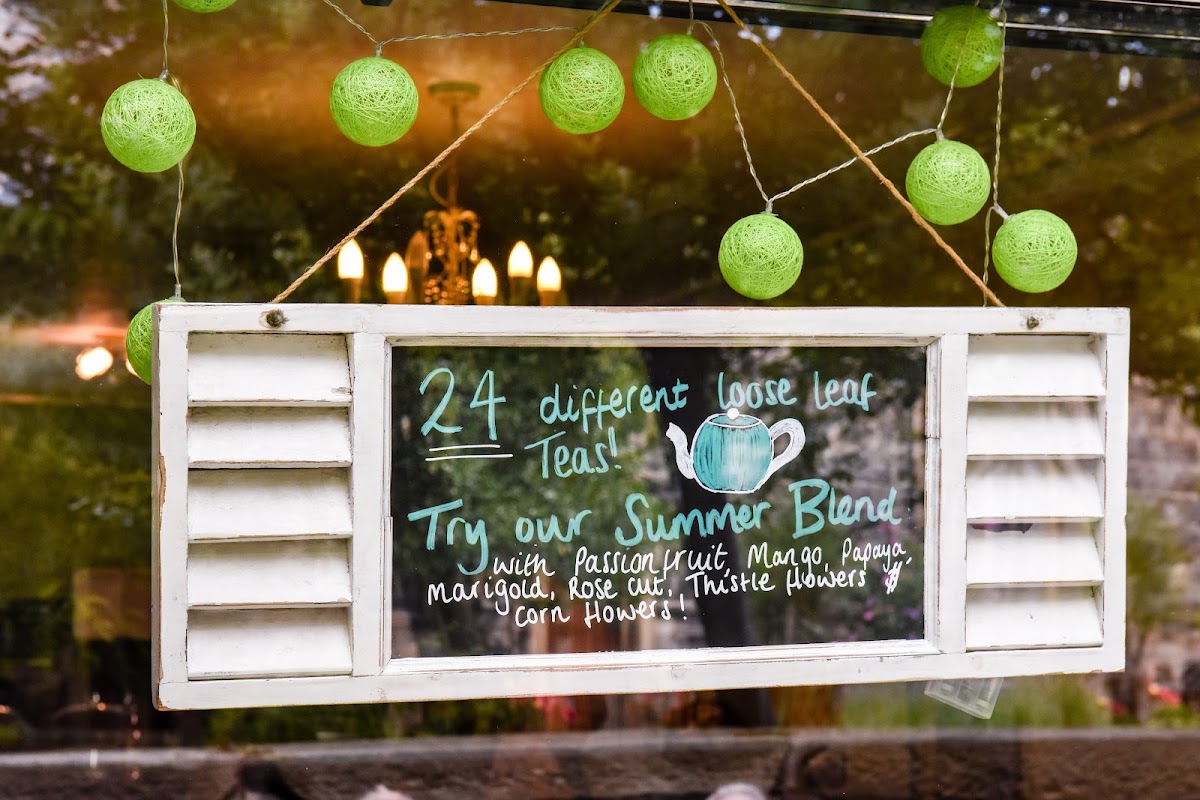 24 different loose leaf
Teas!
Try our Summer Blend
with Passionfruit, Mango, Papaya,
marigold, Rose cut, Thistle flowers &
corn flowers!